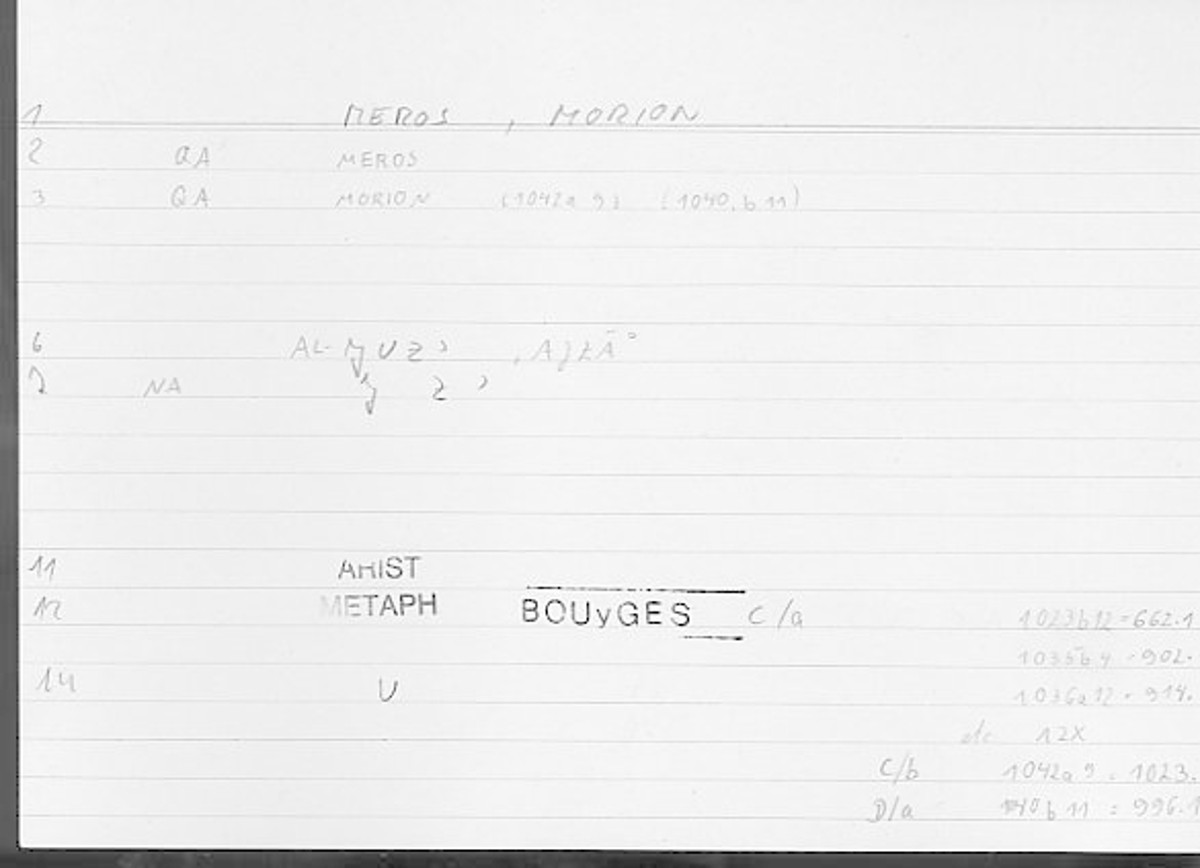 1 MEROS , MORION
2 QA MEROS
3 QA MORION (1042a 9) (1040.b 11)
6 AL-ǧUZʾ , AǧZĀʾ
7 NA ǧ Z ʾ
11 ARIST
12 METAPH BOUyGES C/a 1023b12=662.1
1035b4 = 902.
14 U 1036a12 = 914.
etc 12X
C/b 1042a 9 : 1023.
D/a 1040b 11 : 996.1